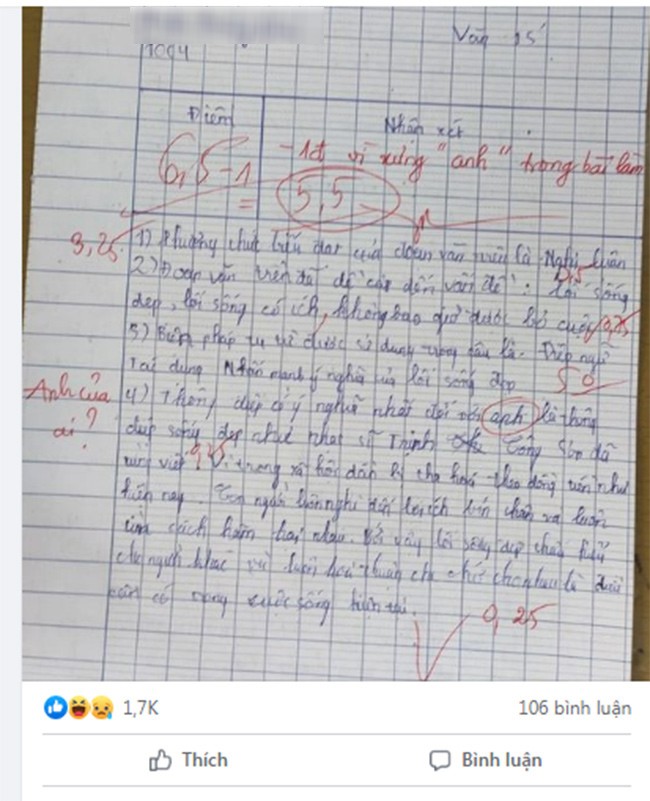 Văn 15'
Điểm
Nhận xét
6,5 - 1
= 5,5
- 1đ vì xưng "anh" trong bài làm
3,25
1) Phương thức biểu đạt của đoạn văn trên là Nghị luận
0,5
2) Đoạn văn trên đã đề cập đến vấn đề: lối sống
đẹp, lối sống có ích, không bao giờ được bỏ cuộc
3) Biện pháp tu từ được sử dụng trong câu là: Điệp ngữ
Tác dụng Nhấn mạnh ý nghĩa của lối sống đẹp
4) Thông điệp có ý nghĩa nhất đối với anh là thông
Anh của
ai?
điệp sống đẹp như nhạc sĩ Trịnh Công Sơn đã
từng viết. Vì trong xã hội dần bị tha hoá theo đồng tiền như
hiện nay. Con người luôn nghĩ đến lợi ích bản thân và luôn
tìm cách hãm hại nhau. Vì vậy lối sống đẹp
người khác và luôn hoà thuận che chở cho nhau là điều
cần có trong cuộc sống hiện tại.
0,25
1,7K
106 bình luận
Thích
Bình luận